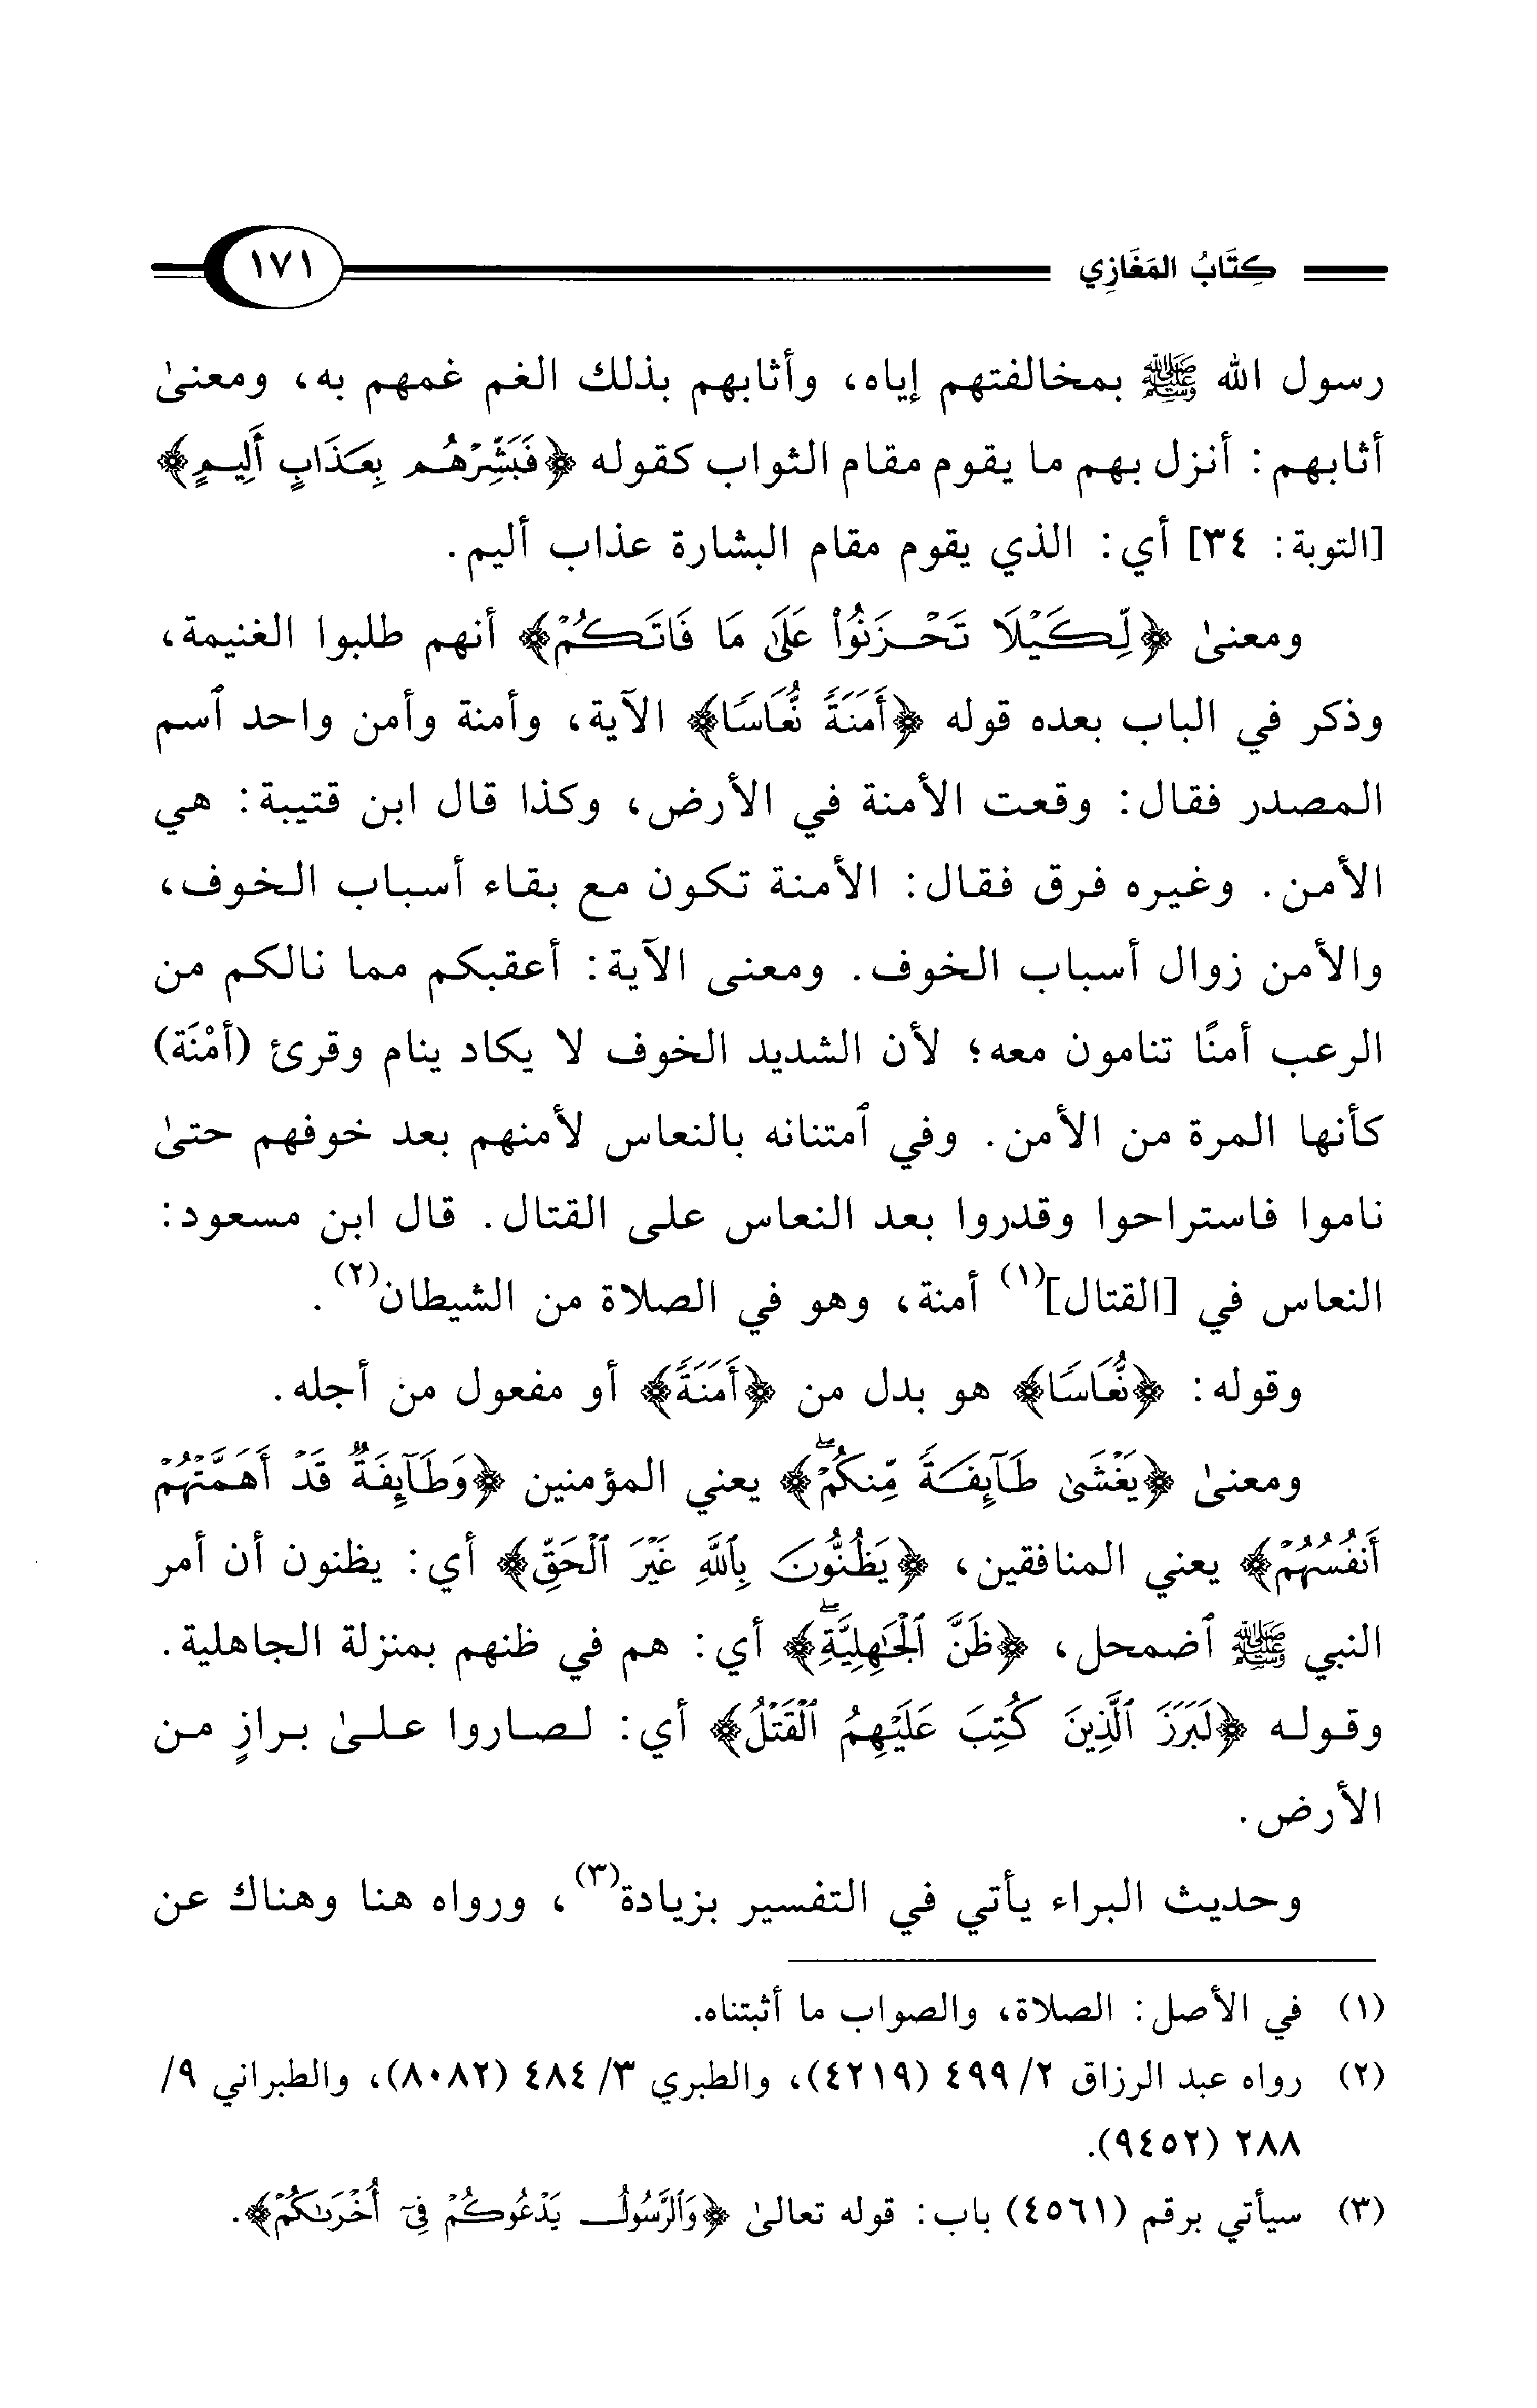 كِتَابُ المَغَازِي
١٧١
رسول الله ﷺ بمخالفتهم إياه، وأثابهم بذلك الغم غمهم به، ومعنىٰ
أثابهم: أنزل بهم ما يقوم مقام الثواب كقوله ﴿فَبَشِّرْهُم بِعَذَابٍ أَلِيمٍ﴾
[التوبة: ٣٤] أي: الذي يقوم مقام البشارة عذاب أليم.
ومعنىٰ ﴿لِّكَيْلَا تَحْزَنُوا۟ عَلَىٰ مَا فَاتَكُمْ﴾ أنهم طلبوا الغنيمة،
وذكر في الباب بعده قوله ﴿أَمَنَةً نُّعَاسًا﴾ الآية، وأمنة وأمن واحد ٱسم
المصدر فقال: وقعت الأمنة في الأرض، وكذا قال ابن قتيبة: هي
الأمن. وغيره فرق فقال: الأمنة تكون مع بقاء أسباب الخوف،
والأمن زوال أسباب الخوف. ومعنى الآية: أعقبكم مما نالكم من
الرعب أمنًا تنامون معه؛ لأن الشديد الخوف لا يكاد ينام وقرئ (أمْنَة)
كأنها المرة من الأمن. وفي ٱمتنانه بالنعاس لأمنهم بعد خوفهم حتىٰ
ناموا فاستراحوا وقدروا بعد النعاس على القتال. قال ابن مسعود:
النعاس في [القتال](١) أمنة، وهو في الصلاة من الشيطان(٢).
وقوله: ﴿نُّعَاسًا﴾ هو بدل من ﴿أَمَنَةً﴾ أو مفعول من أجله.
ومعنىٰ ﴿يَغْشَىٰ طَآئِفَةً مِّنكُمْۖ﴾ يعني المؤمنين ﴿وَطَآئِفَةٌ قَدْ أَهَمَّتْهُمْ
أَنفُسُهُمْ﴾ يعني المنافقين، ﴿يَظُنُّونَ بِٱللَّهِ غَيْرَ ٱلْحَقِّ﴾ أي: يظنون أن أمر
النبي ﷺ ٱضمحل، ﴿ظَنَّ ٱلْجَٰهِلِيَّةِۖ﴾ أي: هم في ظنهم بمنزلة الجاهلية.
وقوله ﴿لَبَرَزَ ٱلَّذِينَ كُتِبَ عَلَيْهِمُ ٱلْقَتْلُ﴾ أي: لصاروا علىٰ برازٍ من
الأرض.
وحديث البراء يأتي في التفسير بزيادة(٣)، ورواه هنا وهناك عن
(١) في الأصل: الصلاة، والصواب ما أثبتناه.
(٢) رواه عبد الرزاق ٢/ ٤٩٩ (٤٢١٩)، والطبري ٣/ ٤٨٤ (٨٠٨٢)، والطبراني ٩/
٢٨٨ (٩٤٥٢).
(٣) سيأتي برقم (٤٥٦١) باب: قوله تعالىٰ ﴿وَٱلرَّسُولُ يَدْعُوكُمْ فِىٓ أُخْرَىٰكُمْ﴾.